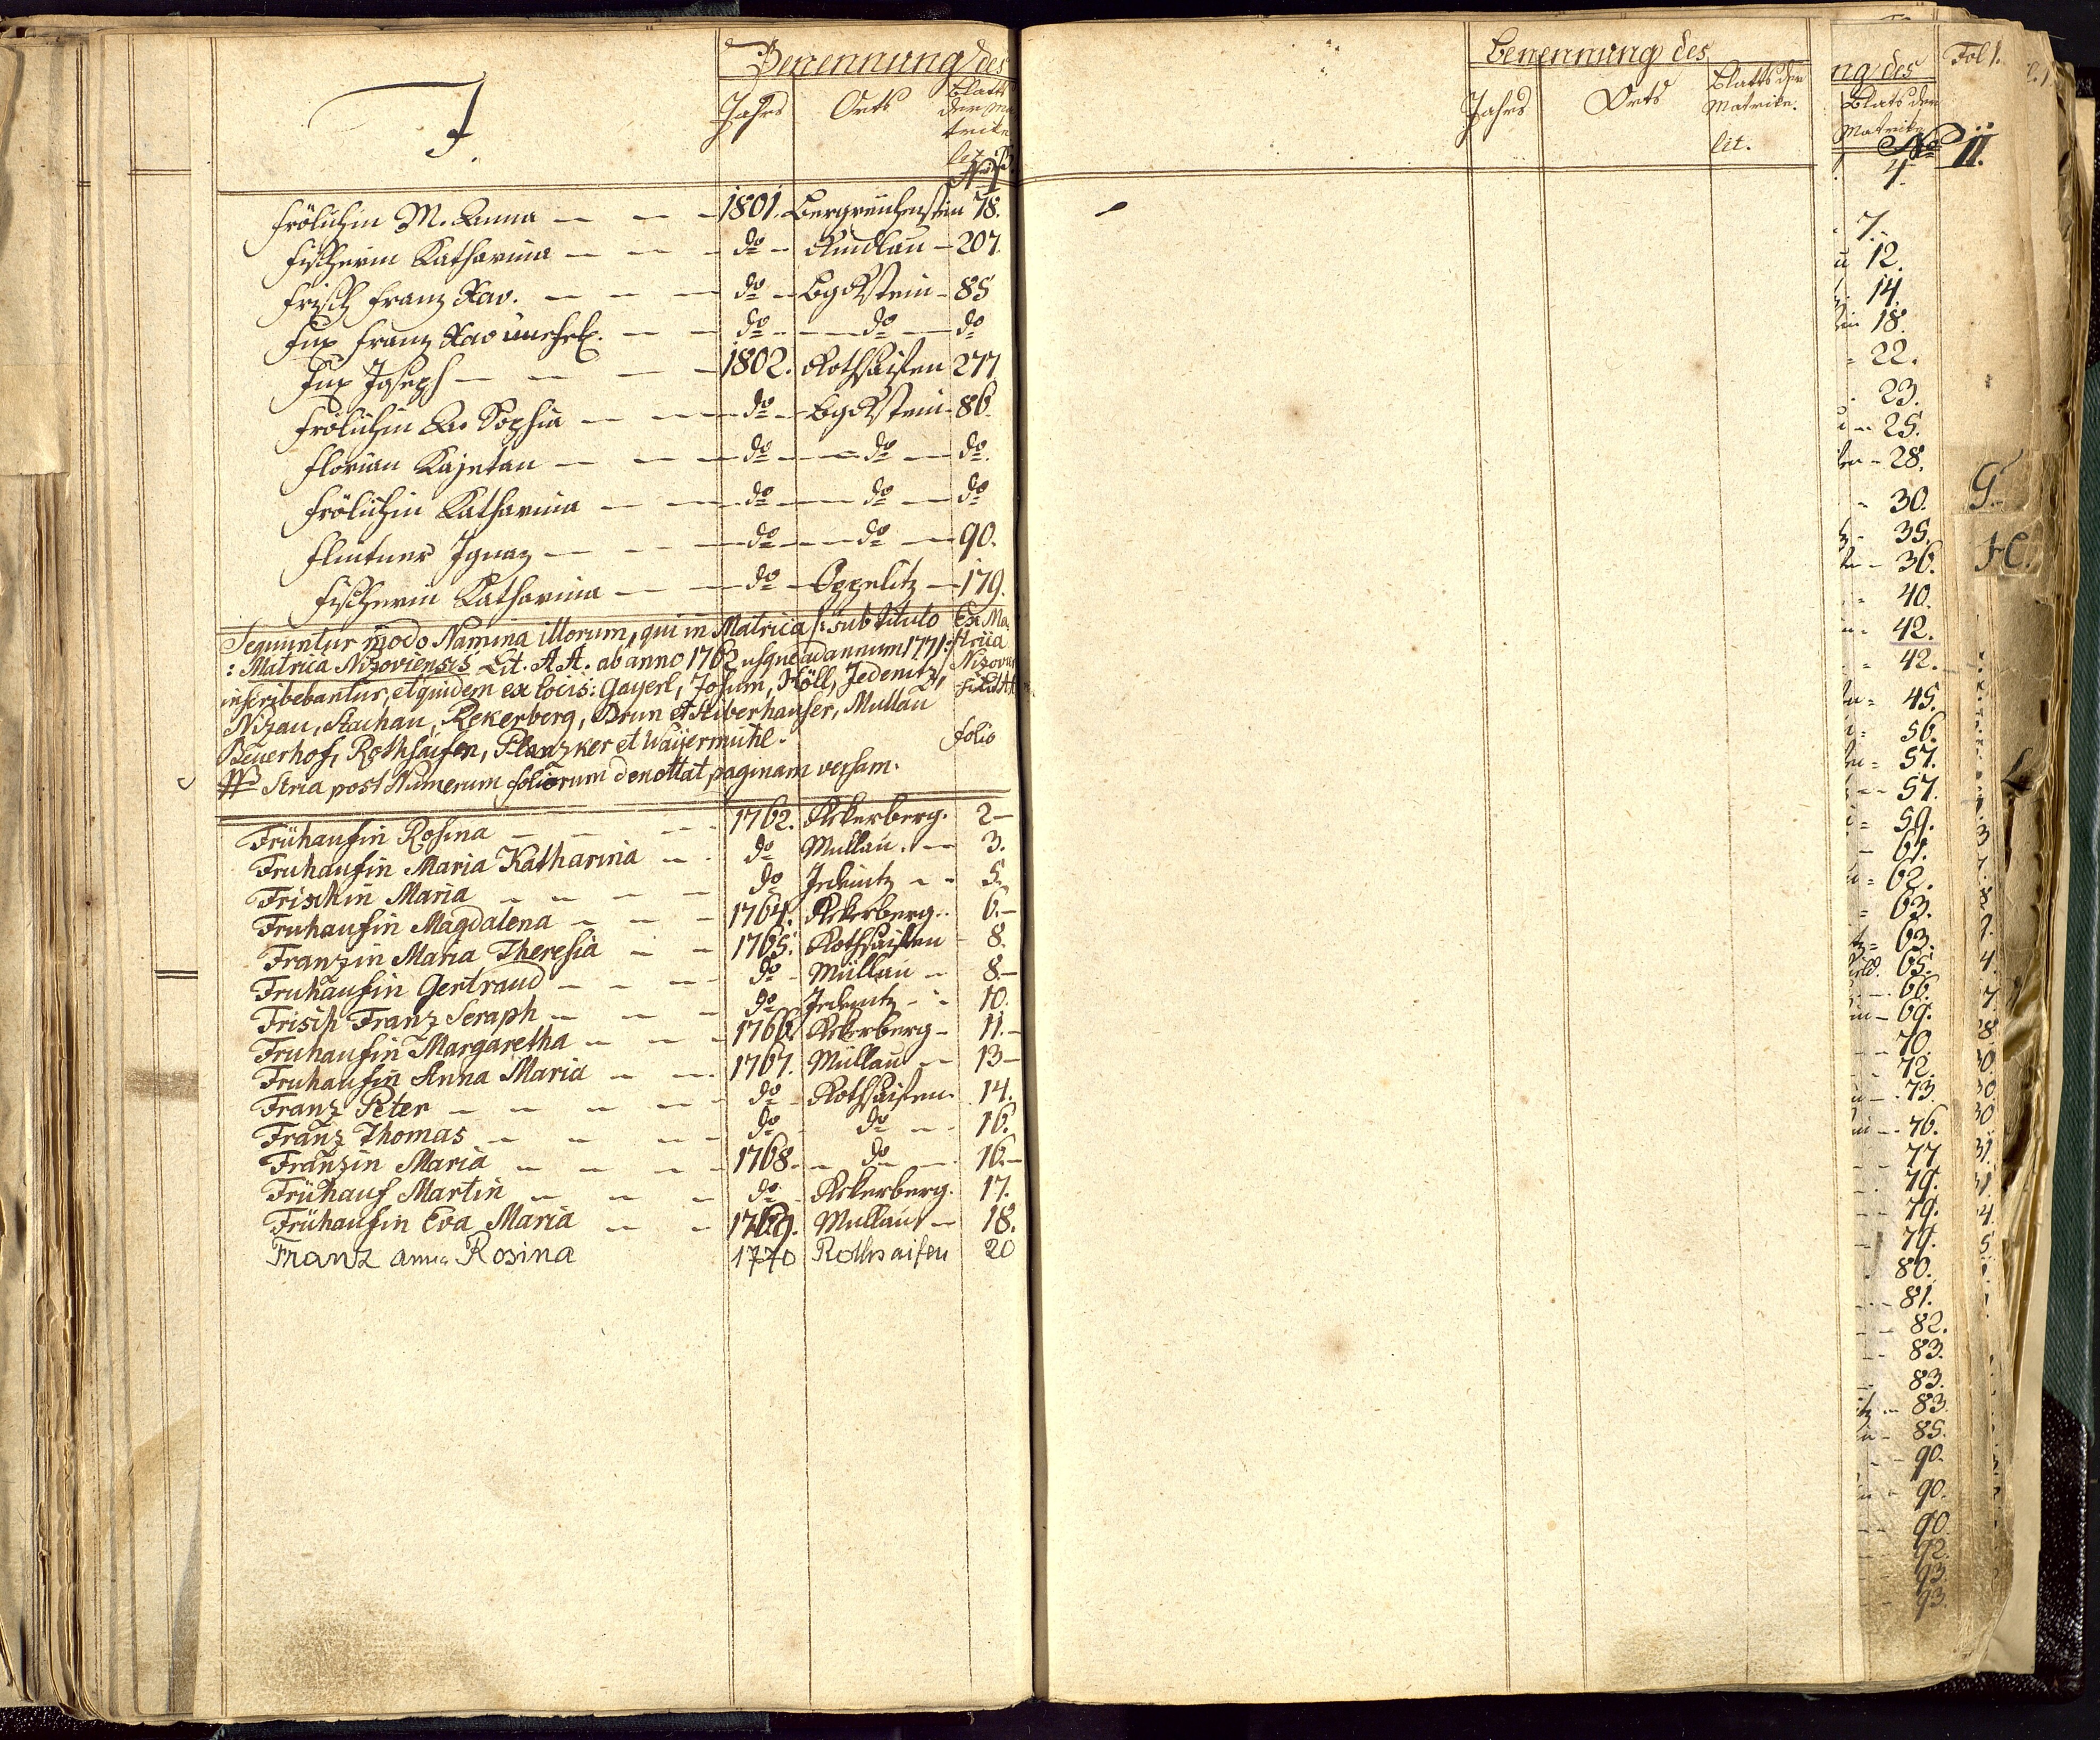 F.
Benennung des
Jahrs Orts Blatts der Matrike
lit. B.
Frölichin M. Anna — — — 1801. Bergreichenstein 78.
Fischerin Katharina — — — do — Kundlau — 207.
Frisch Franz Xav. — — — do — BgRstein — 85
Fux Franz Xav unehel. — — do — do — do
Fux Joseph — — — 1802. Rothsaifen 277
Frölichin A. Sophia — — do — BgRstein — 86.
Florian Kajetan — — — do — do — do.
Frölichin Katharina — — do — do — do
Flintner Ignaz — — — do — do — 90.
Fischerin Katharina — — — do — Oppelitz — 179.
Sequuntur modo Namina illorum, qui in Matrica /: sub titulo Ex Ma-
: Matrica Nizoviensis Lit. A A. ab anno 1762 usque ad annum 1771:/ trica
inscribebantur, et quidem ex locis: Gayerl, Josum, Höll, Jedenitz, Nizov:
Nizau, Stachau, Rekerberg, Brun et Stiberhauser, Mullau
Beuerhof, Rothsaifen, Planzker et Waijermühl. folio
NB Stria post Numerum foliorum denottat paginam versam.
Frühaufin Rosina — — — 1762. Rekerberg. 2 —
Fruhaufin Maria Katharina — do Mullau. — 3.
Frischin Maria — — — — do Jedenitz — 5.
Fruhaufin Magdalena — — — 1764. Rekerberg. 6. —
Franzin Maria Theresia — — 1765. Rothsaifen 8.
Fruhaufin Gertraud — — — do — Mullau — 8. —
Frisch Franz Seraph — — — do Jedenitz — 10.
Fruhaufin Margaretha — — — 1766. Rekerberg — 11. —
Fruhaufin Anna Maria — — 1767. Mullau — 13 —
Franz Peter — — — — do — Rothsaifen 14.
Franz Thomas — — — do — do — 16.
Franzin Maria — — — — 1768. — do — 16. —
Frühauf Martin — — — do — Rekerberg. 17.
Frühaufin Eva Maria — — 1769. Mullau — 18.
Franz Anna Rosina 1770 Rothsaifen 20
Benennung des
Jahrs Orts Blatts der Matrike.
lit.
ng des
Blats der
Matrike
No II.
Fol 1.
4.
7.
12.
14.
18.
22.
23.
25.
28.
30.
35.
36.
40.
42.
42.
45.
56.
57.
57.
59.
61.
62.
63.
63.
65.
66.
69.
70.
72.
73.
76.
77
79.
79.
79.
80.
81.
82.
83.
83.
83.
85.
90.
90.
90
92.
93.
93.
G.
H.